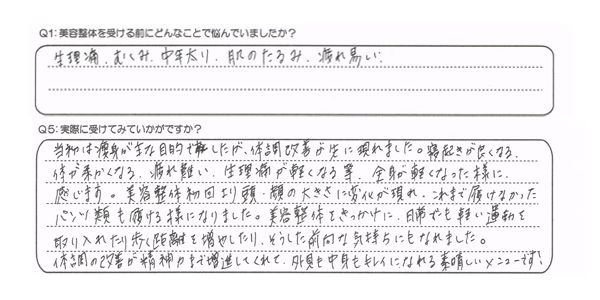 Q1:美容整体を受ける前にどんなことで悩んでいましたか？
生理痛、むくみ、中年太り、肌のたるみ、疲れ易い
Q5:実際に受けてみていかがですか？
当初は痩身が主な目的でしたが、体調改善が先に現れました。寝起きが良くなる、
体が柔かくなる、疲れ難い、生理痛が軽くなる等、全身が軽くなった様に
感じます。美容整体初回より頭・顔の大きさに変化が現れ、これまで履けなかった
パンツ類も履ける様になりました。美容整体をきっかけに、日常でも軽い運動を
取り入れたり歩く距離を増やしたり、そうした前向な気持ちにもなれました。
体調の改善が精神力まで増進してくれて、外見も中身もキレイになれる素晴しいメニューです！